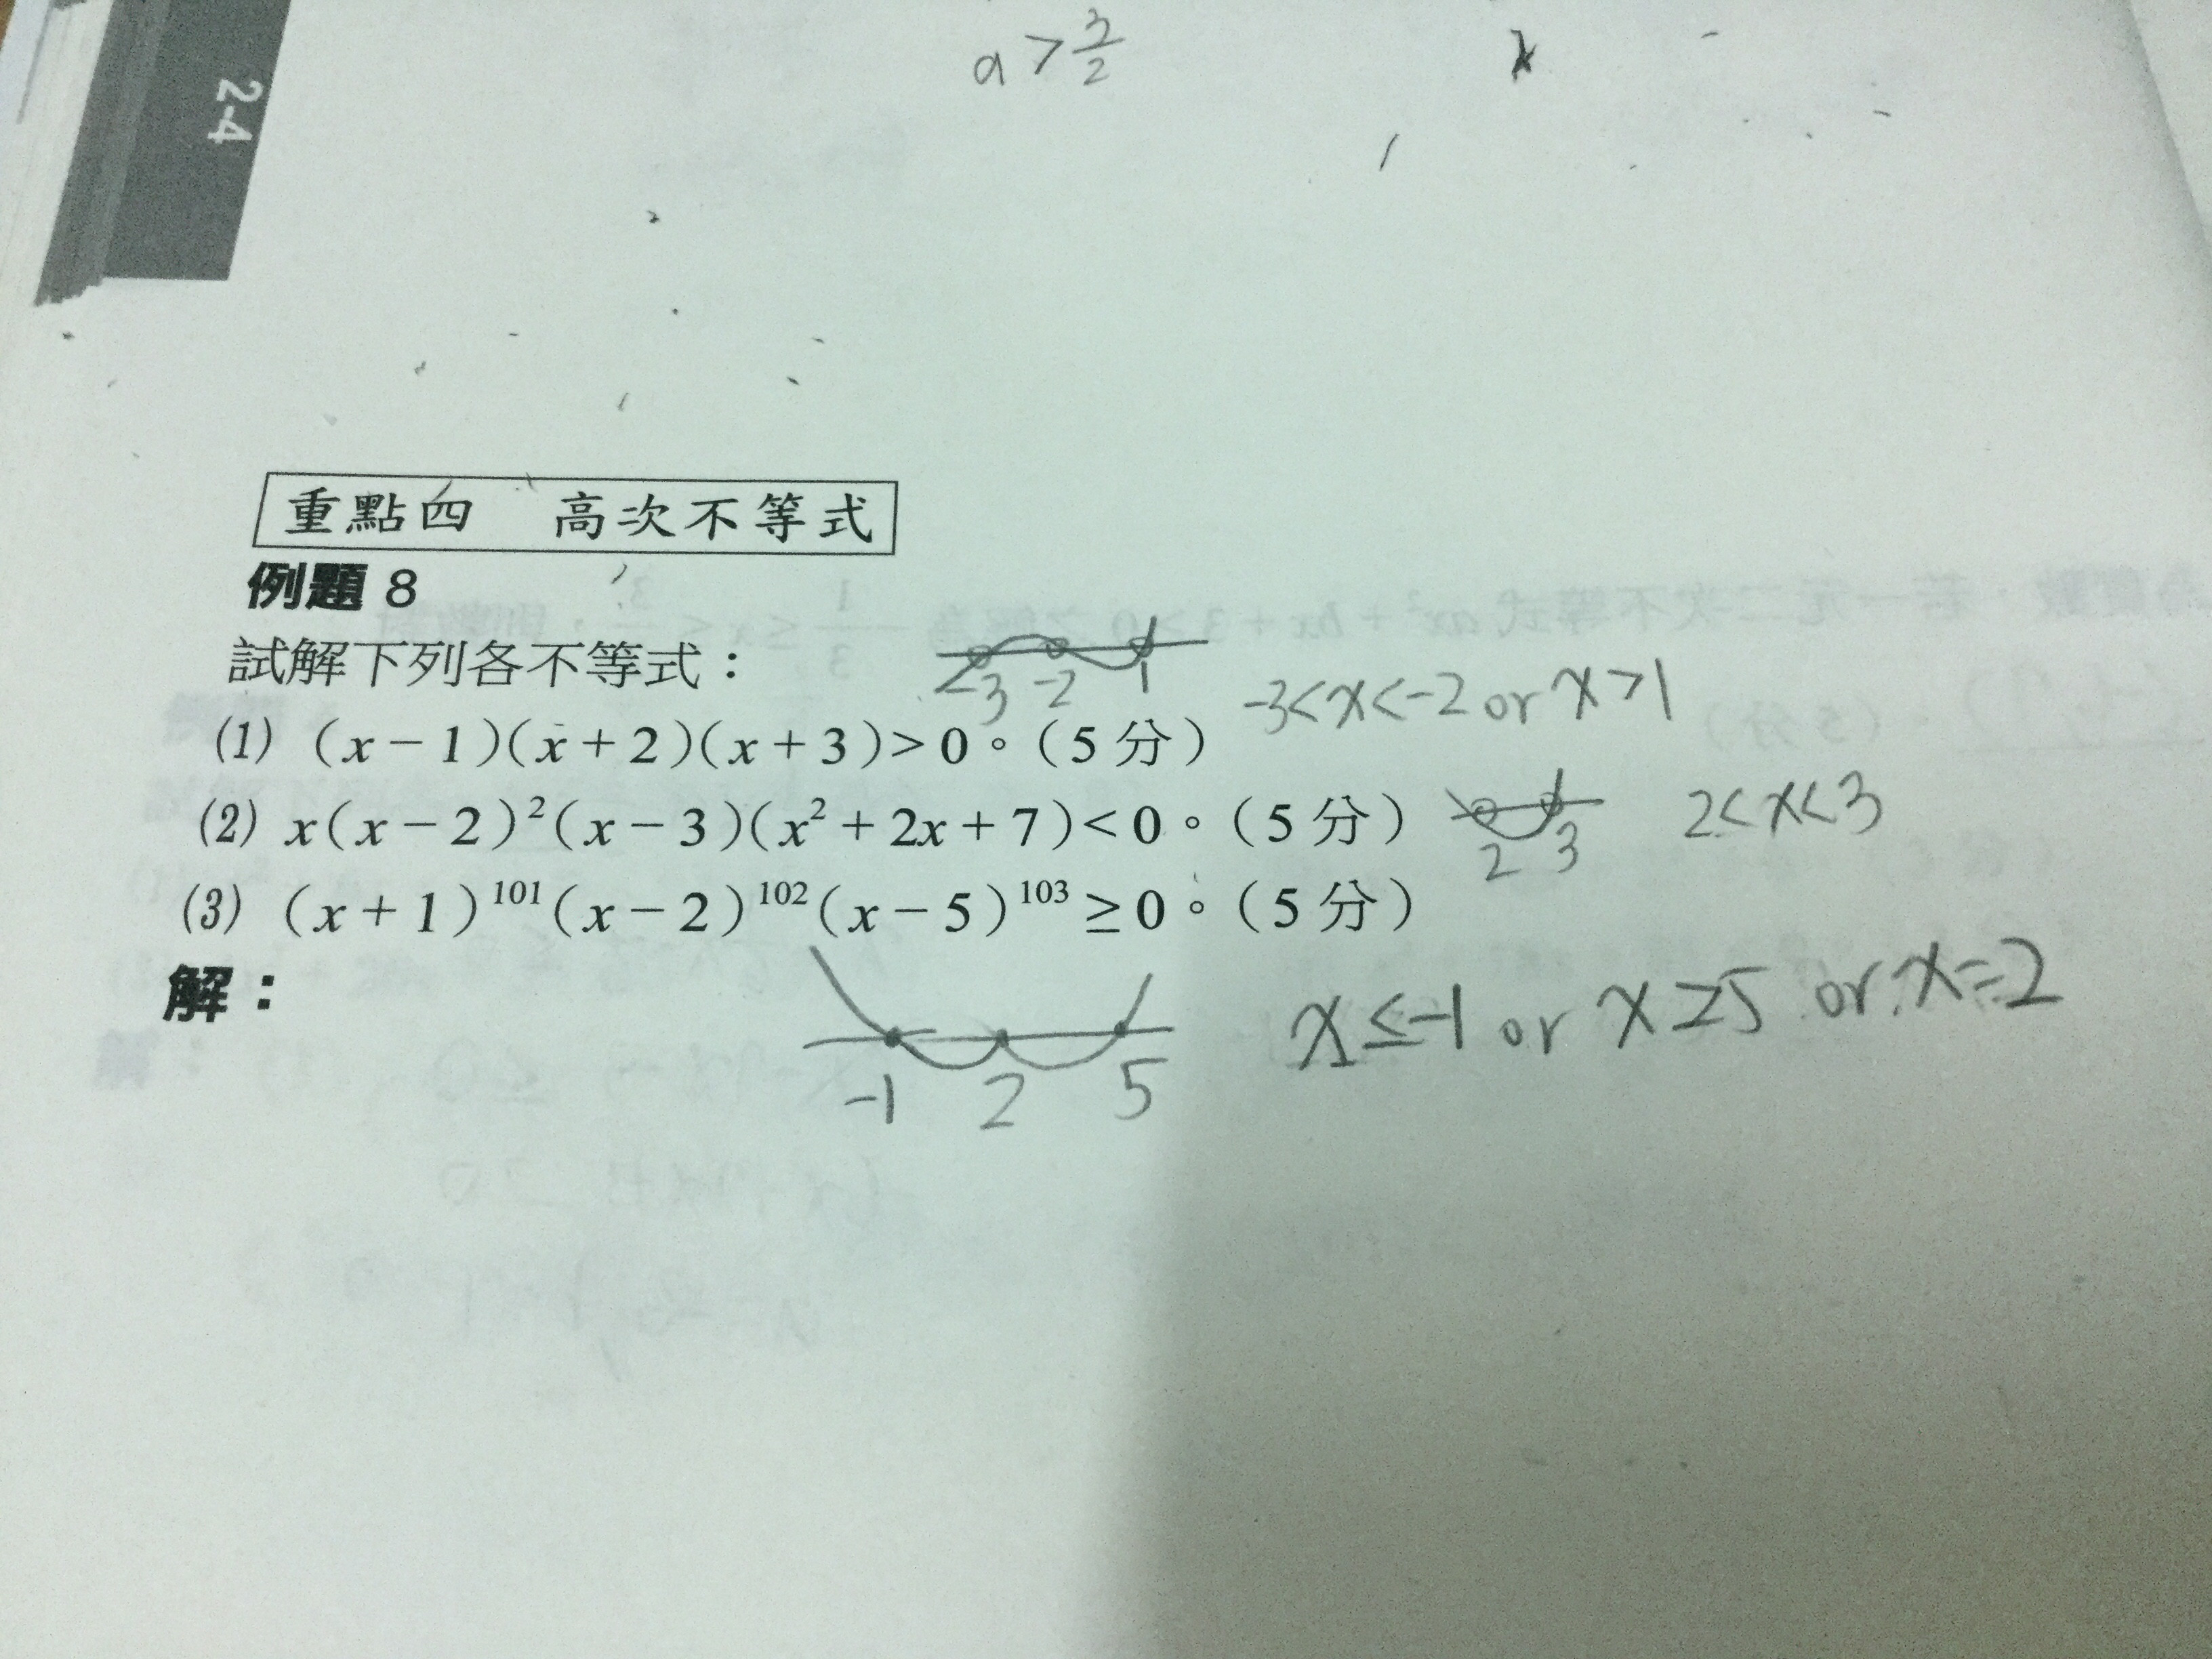 2-4
a > 3/2
x
重點四 高次不等式
例題 8
試解下列各不等式：
-3 -2 1
-3<x<-2 or x>1
(1) (x－1)(x＋2)(x＋3)>0。(5 分)
(2) x(x－2)²(x－3)(x²＋2x＋7)<0。(5 分)
2 3
2<x<3
(3) (x＋1)¹⁰¹(x－2)¹⁰²(x－5)¹⁰³≥0。(5 分)
解：
-1 2 5
x≤-1 or x≥5 or x=2